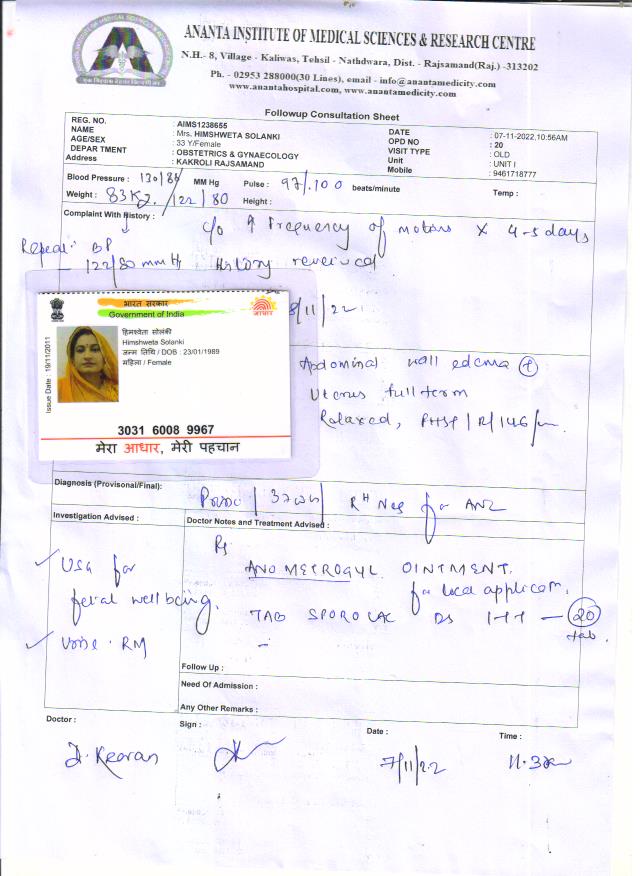 ANANTA INSTITUTE OF MEDICAL SCIENCES & RESEARCH CENTRE
N.H.- 8, Village - Kaliwas, Tehsil - Nathdwara, Dist. - Rajsamand(Raj.) -313202
Ph. - 02953 288000(30 Lines), email - info@anantamedicity.com
www.anantahospital.com, www.anantamedicity.com
Followup Consultation Sheet
REG. NO. : AIMS1238655 DATE : 07-11-2022,10:56AM
NAME : Mrs. HIMSHWETA SOLANKI OPD NO : 20
AGE/SEX : 33 Y/Female VISIT TYPE : OLD
DEPARTMENT : OBSTETRICS & GYNAECOLOGY Unit : UNIT I
Address : KAKROLI RAJSAMAND Mobile : 9461718777
Blood Pressure : 130/88 MM Hg Pulse : 97/.100 beats/minute Temp :
Weight : 83Kg. /122/80 Height :
Complaint With History :
c/o ↑ Frequency of motions X 4-5 days
Repeat BP
122/80 mm Hg History received
8/11/22
भारत सरकार
Government of India
आधार
Issue Date : 19/11/2011
हिमश्वेता सोलंकी
Himshweta Solanki
जन्म तिथि / DOB : 23/01/1989
महिला / Female
3031 6008 9967
मेरा आधार, मेरी पहचान
Abdominal wall edema +
Uterus full term
Relaxed, /R/146/m
Diagnosis (Provisonal/Final):
37 RH Neg for ANC
Investigation Advised :
Doctor Notes and Treatment Advised :
Rx
USG for
fetal wellbeing.
Urine RM
ANO METROGYL OINTMENT.
for local applicatn.
TAB SPOROLAC DS 1-1-1 — 20 tab.
Follow Up :
Need Of Admission :
Any Other Remarks :
Doctor : Sign : Date : Time :
7/11/22